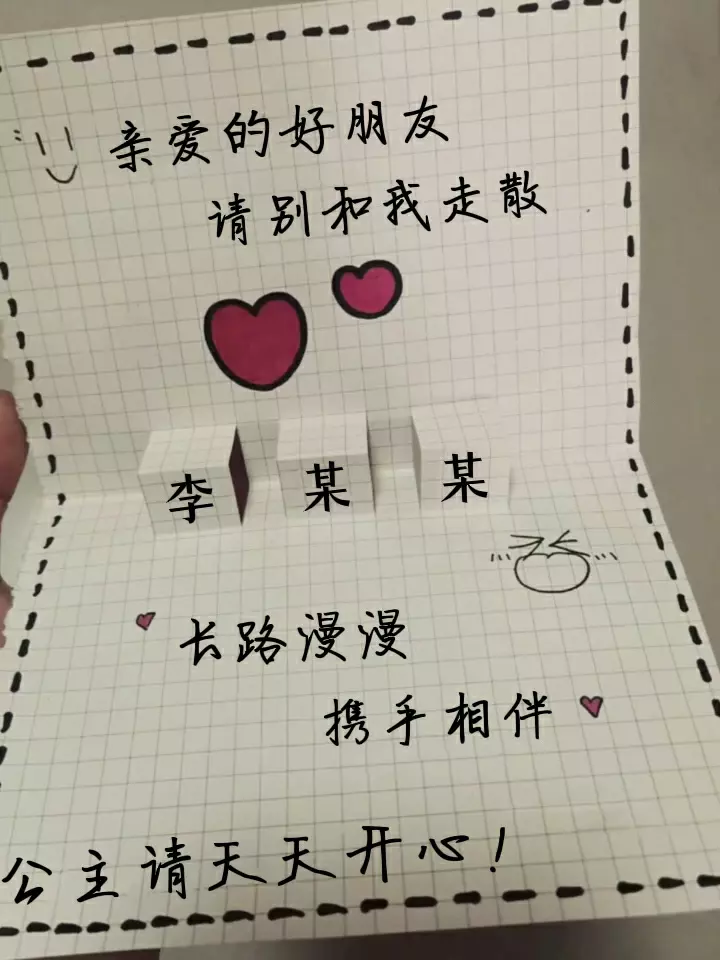 亲爱的好朋友
请别和我走散
李某某
长路漫漫
携手相伴
公主请天天开心!